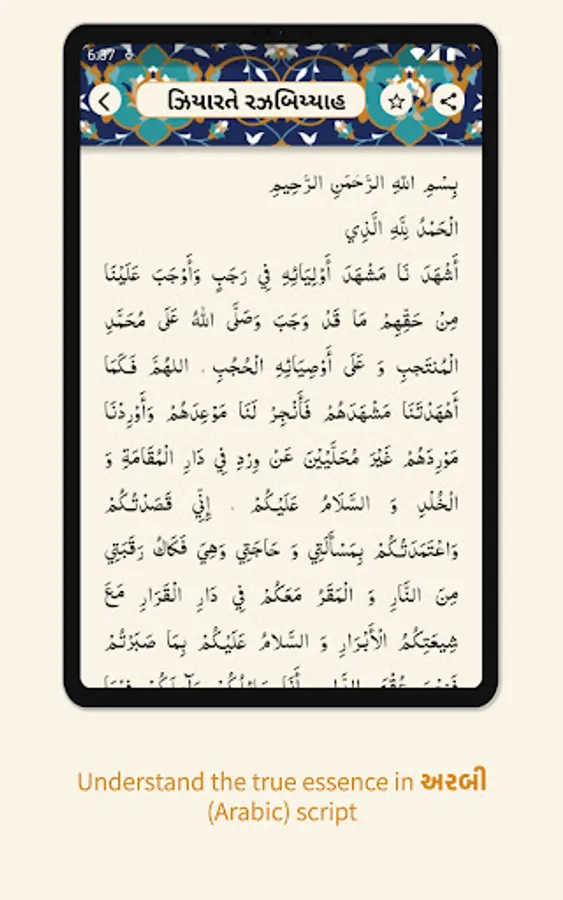 6:37
ઝિયારતે રઝબિય્યાહ
بِسْمِ اللهِ الرَّحْمَنِ الرَّحِيمِ
الْحَمْدُ لِلَّهِ الَّذِي
أَشْهَدَ نَا مَشْهَدَ أَوْلِيَائِهِ فِي رَجَبٍ وَأَوْجَبَ عَلَيْنَا
مِنْ حَقِّهِمْ مَا قَدْ وَجَبَ وَصَلَّى اللهُ عَلَى مُحَمَّدٍ
الْمُنْتَجَبِ وَ عَلَى أَوْصِيَائِهِ الْحُجُبِ . اللهُمَّ فَكَمَا
أَهْهَدْتَنَا مَشْهَدَهُمْ فَأَنْجِزْ لَنَا مَوْعِدَهُمْ وَأَوْرِدْنَا
مَوْرِدَهُمْ غَيْرَ مُحَلَّيْنَ عَنْ وِرْدٍ فِي دَارِ الْمُقَامَةِ وَ
الْخُلْدِ وَ السَّلَامُ عَلَيْكُمْ . إِنِّي قَصَدْتُكُمْ
وَاعْتَمَدْتُكُمْ بِمَسْأَلَتِي وَ حَاجَتِي وَهِيَ فَكَاكُ رَقَبَتِي
مِنَ النَّارِ وَ الْمَقَرُّ مَعَكُمْ فِي دَارِ الْقَرَارِ مَعَ
شِيعَتِكُمُ الْأَبْرَارِ وَ السَّلامُ عَلَيْكُمْ بِمَا صَبَرْتُمْ
Understand the true essence in અરબી
(Arabic) script